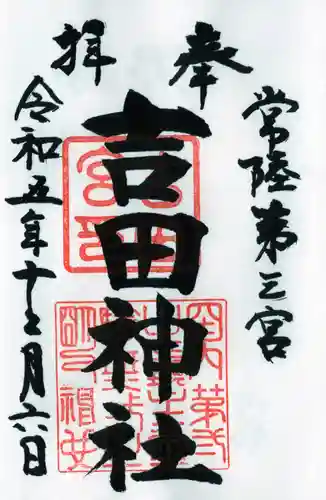 奉拝
常陸第三宮
吉田神社
令和五年十二月六日